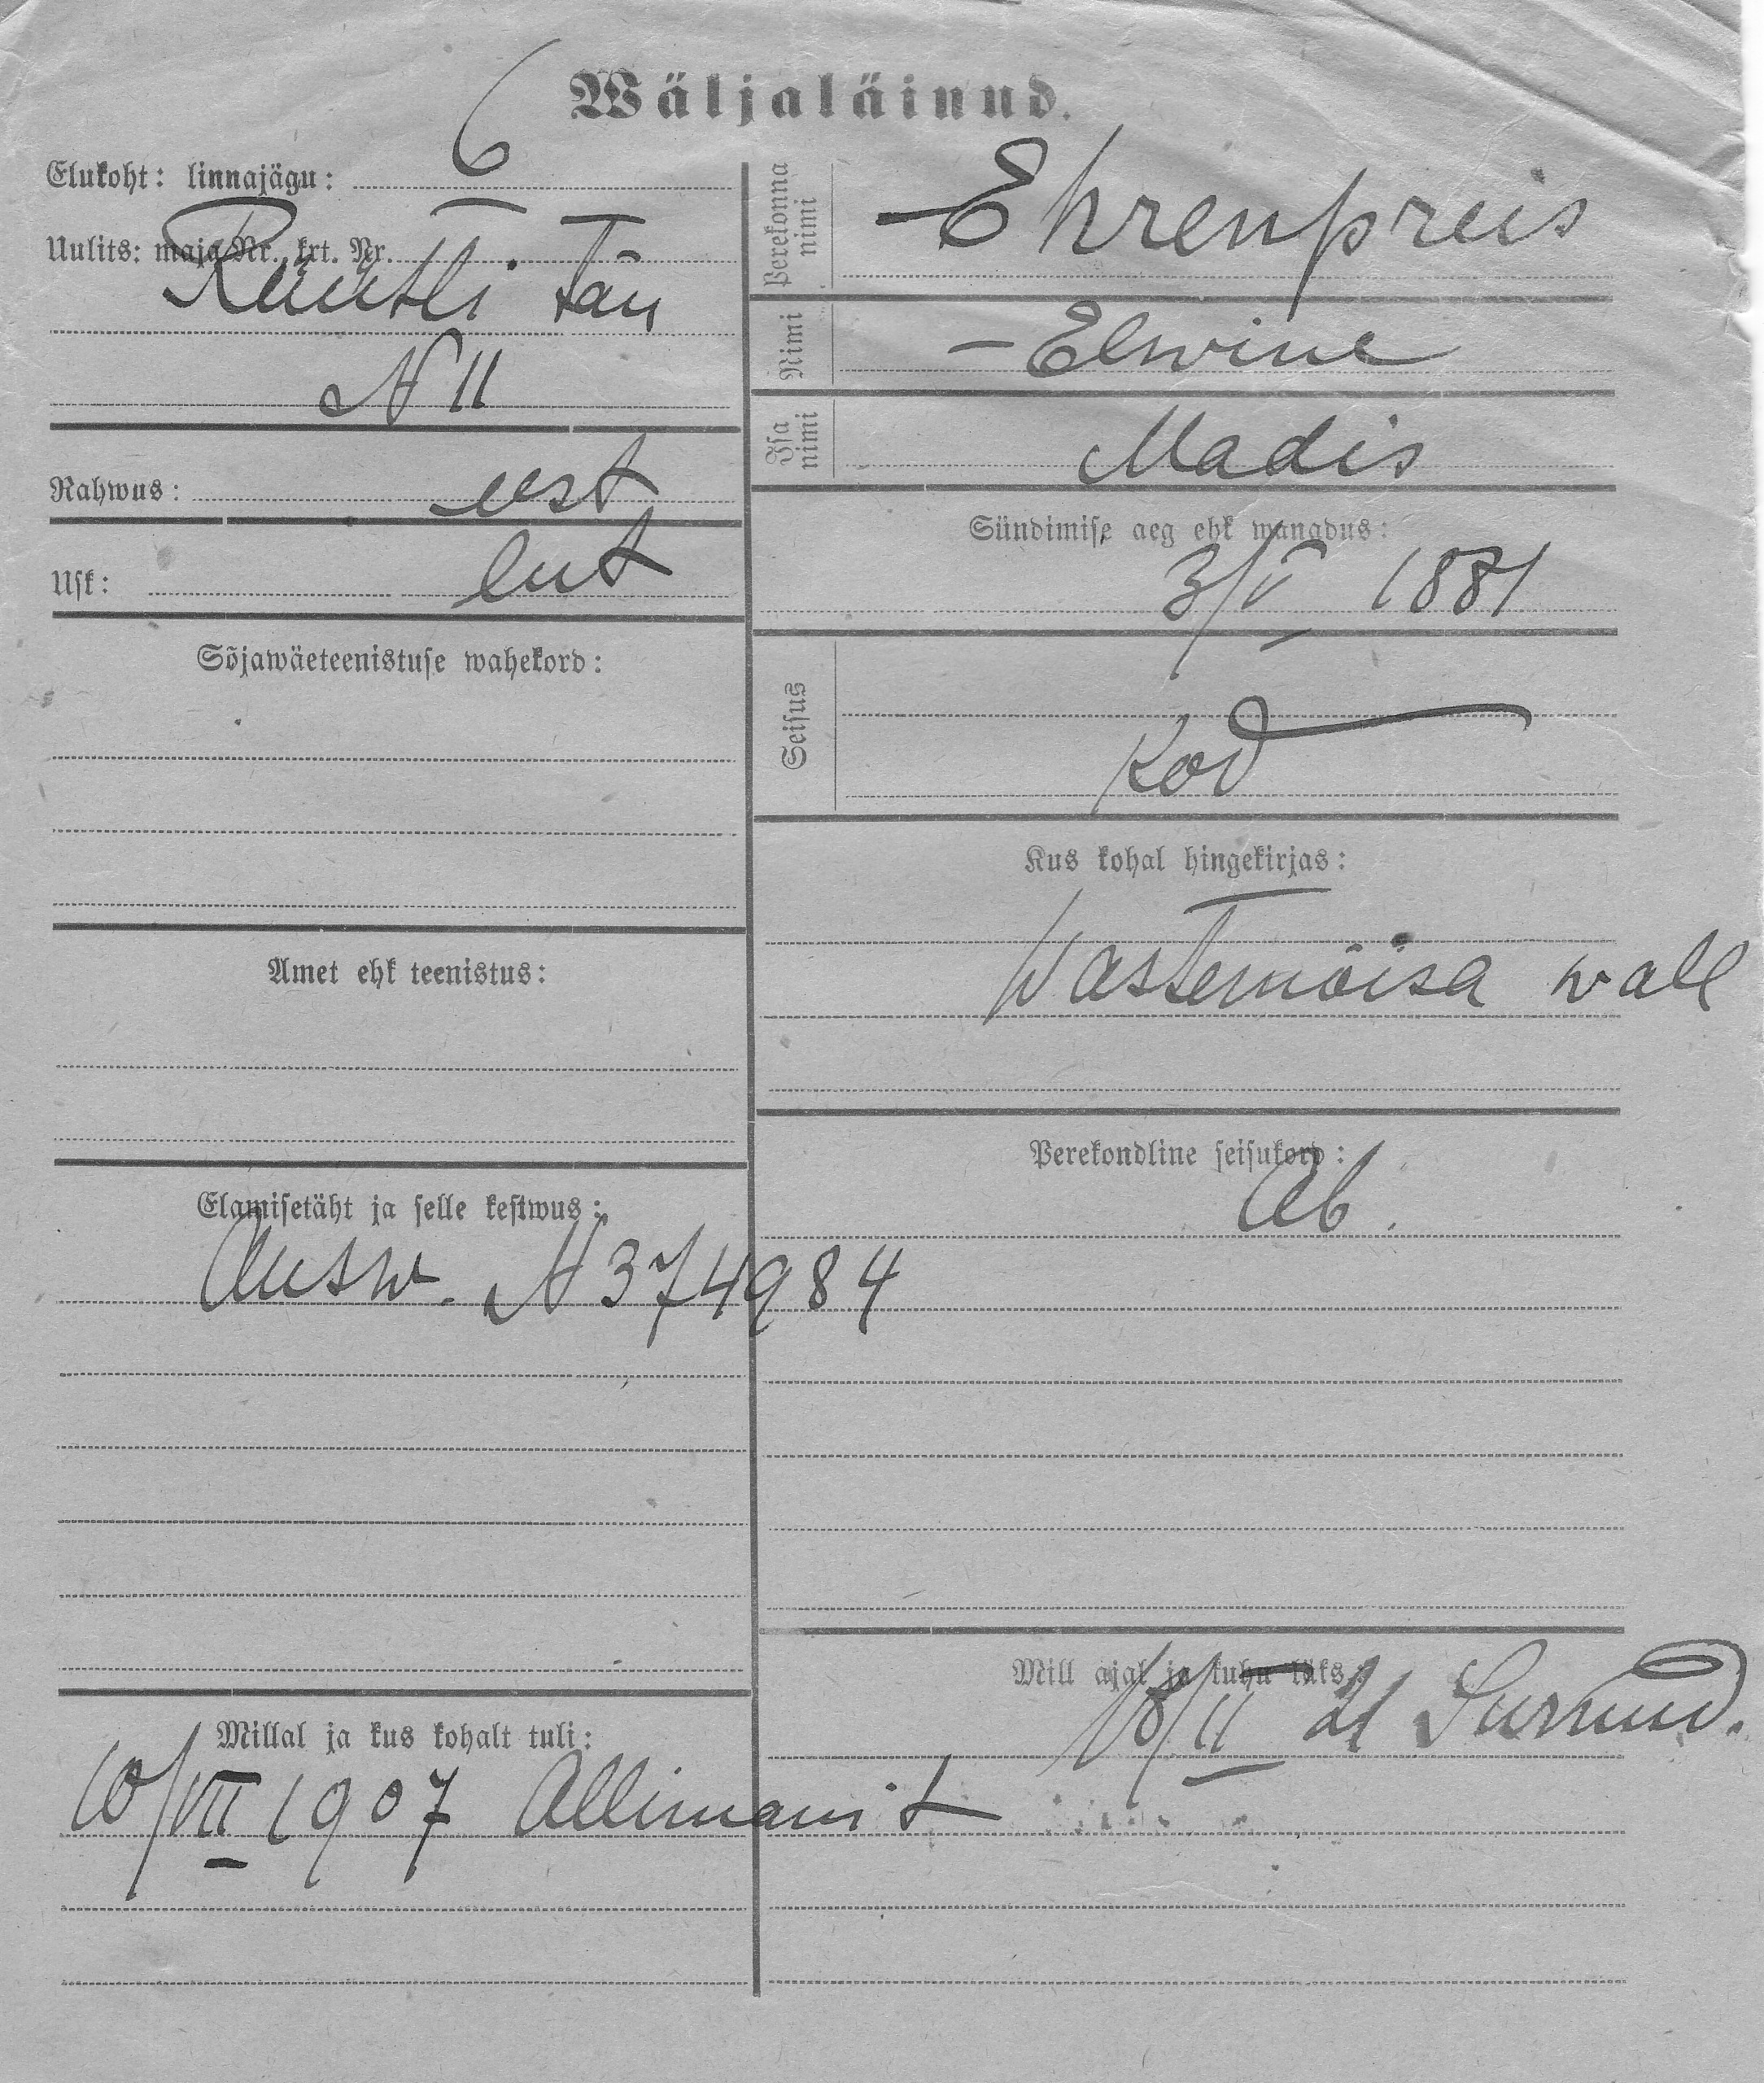 Wäljaläinud.
Elukoht: linnajägu: 6
Uulits: maja Nr., krt. Nr.
Rüütli Tän
N 11
Rahwus: eest
Usk: lut
Sõjawäeteenistuse wahekord:
Amet ehk teenistus:
Elamisetäht ja selle kestwus:
Ausw. N 374984
Millal ja kus kohalt tuli:
10/VII 1907 Allimanit
Perekonna nimi
Ehrenpreis
Nimi
Elwine
Isa nimi
Madis
Sündimise aeg ehk wanadus:
3/V 1881
Seisus
Kod
Kus kohal hingekirjas:
Wastemõisa wall
Perekondline seisukord:
Ab.
Mill ajal ja kuhu läks
18/II 21 Surnud.